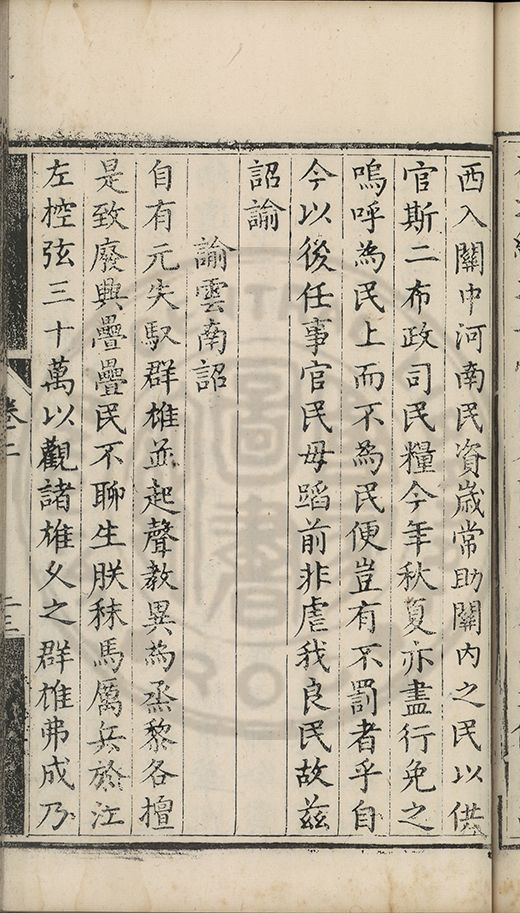 西入關中河南民資歲常助關內之民以供
官斯二布政司民糧今年秋夏亦盡行免之
嗚呼為民上而不為民便豈有不罰者乎自
今以後任事官民毋蹈前非虐我良民故茲
詔諭
諭雲南詔
自有元失馭群雄並起聲教異為烝黎各擅
是致廢興疊疊民不聊生朕秣馬厲兵於江
左控弦三十萬以觀諸雄乆之群雄弗成乃
卷二